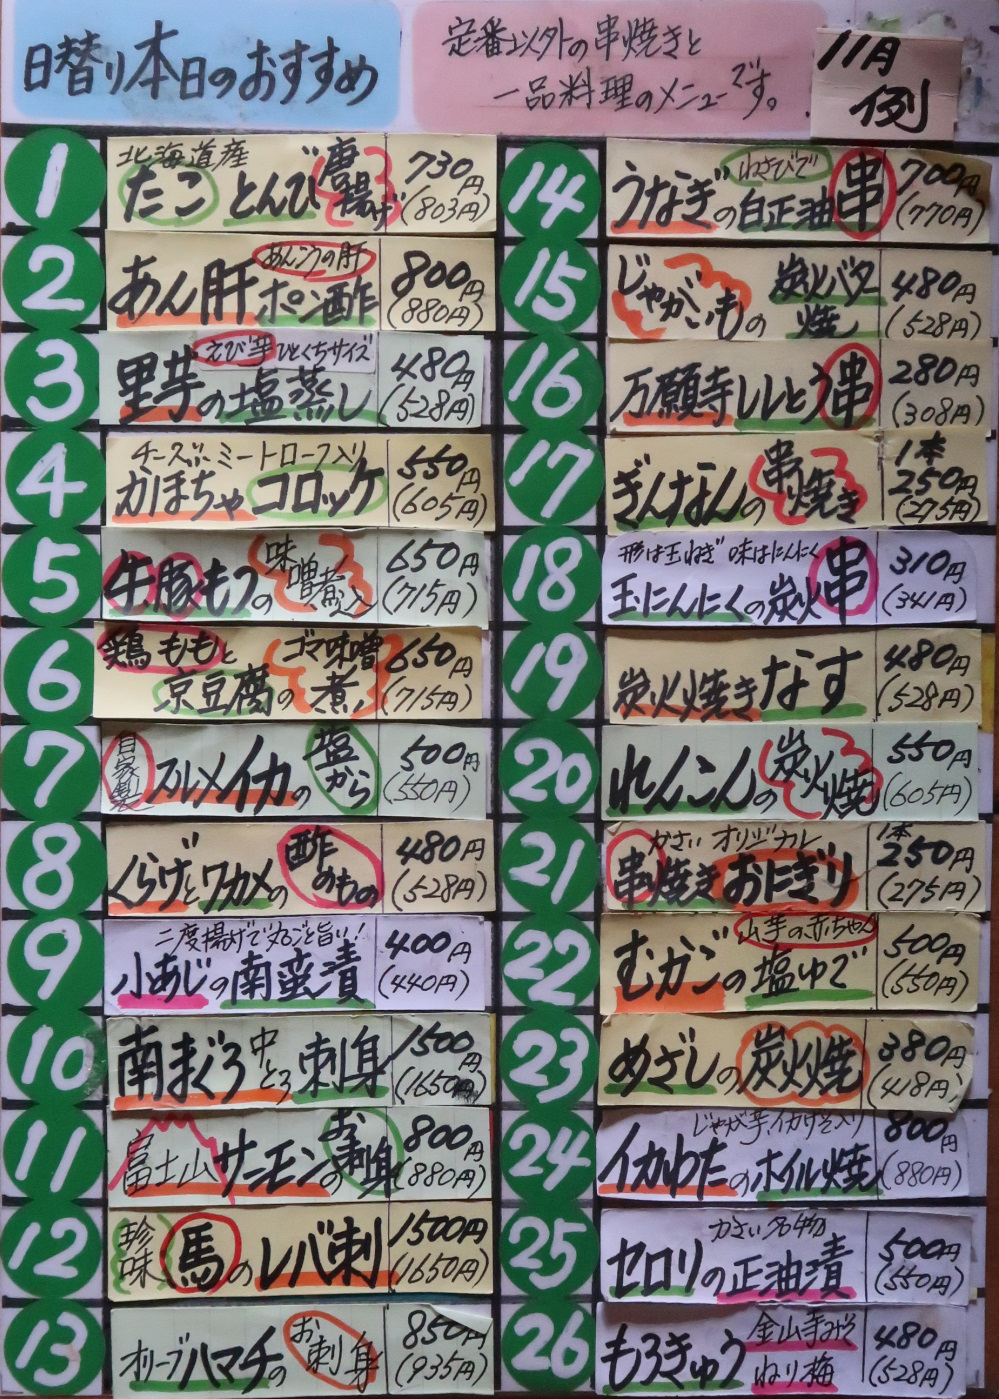 日替り本日のおすすめ
定番以外の串焼きと
一品料理のメニューです。
11月
例
1
北海道産
たこ とんび 唐揚げ
730円
(803円)
2
あんこうの肝
あん肝 ポン酢
800円
(880円)
3
えび芋 ひとくちサイズ
里芋の塩蒸し
480円
(528円)
4
チーズ、ミートローフ入り
かぼちゃコロッケ
550円
(605円)
5
牛豚もつの味噌煮込
650円
(715円)
6
鶏ももと
京豆腐のゴマ味噌煮
650円
(715円)
7
自家製
スルメイカの塩から
500円
(550円)
8
くらげとワカメの酢のもの
480円
(528円)
9
二度揚げで丸ごと旨い!
小あじの南蛮漬
400円
(440円)
10
南まぐろ中とろ 刺身
1500円
(1650円)
11
富士山サーモンのお刺身
800円
(880円)
12
珍味
馬のレバ刺
1500円
(1650円)
13
オリーブハマチのお刺身
850円
(935円)
14
わさびで
うなぎの白正油串
700円
(770円)
15
じゃがいもの炭火バター焼
480円
(528円)
16
万願寺ししとう串
280円
(308円)
17
ぎんなんの串焼き
1本
250円
(275円)
18
形は玉ねぎ 味はにんにく
玉にんにくの炭火串
310円
(341円)
19
炭火焼きなす
480円
(528円)
20
れんこんの炭火焼
550円
(605円)
21
かさい オリジナル
串焼きおにぎり
1本
250円
(275円)
22
山芋の赤ちゃん
むかごの塩ゆで
500円
(550円)
23
めざしの炭火焼
380円
(418円)
24
じゃが芋、イカゲソ入り
イカわたのホイル焼
800円
(880円)
25
かさい名物
セロリの正油漬
500円
(550円)
26
もろきゅう
金山寺みそ
ねり梅
480円
(528円)